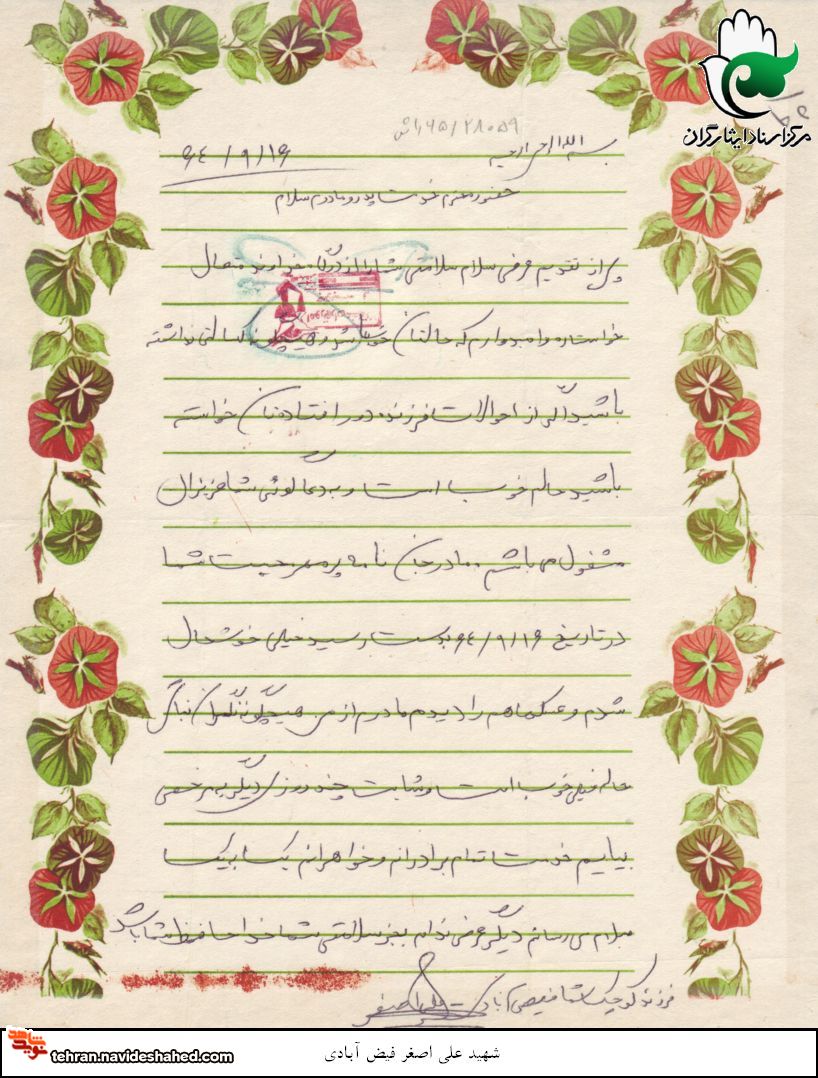 مرکز اسناد ایثارگران
۶۵/۲۸۰۵۹
بسم الله الرحمن الرحیم ۶۴/۹/۱۶
حضور محترم خدمت پدر و مادرم سلام
پس از تقدیم عرض سلام سلامتی شما را از درگاه خداوند متعال
خواستارم و امیدوارم که حالتان خوب باشد و هیچگونه کسالتی نداشته
باشید و اگر از احوالات فرزند دور افتاده‌تان خواسته
باشید حالم خوب است و به دعا گوئی شما عزیزان
مشغول می باشم . مادر جان نامه پر محبت شما
در تاریخ ۶۴/۹/۱۶ بدست رسید خیلی خوشحال
شدم و عکسها هم را دیدم مادرم از من هیچگونه نگران نباش
حالم خیلی خوب است و شاید چند روز دیگر به مرخصی
بیایم خدمت تمام برادرانم و خواهرانم یک یک
سلام می رسانم دیگر عرضی ندارم بجز سلامتی شما خدا حافظ شما باشد
فرزند کوچک شما فیض آبادی علی اصغر
شهید علی اصغر فیض آبادی
نوید شاهد
tehran.navideshahed.com